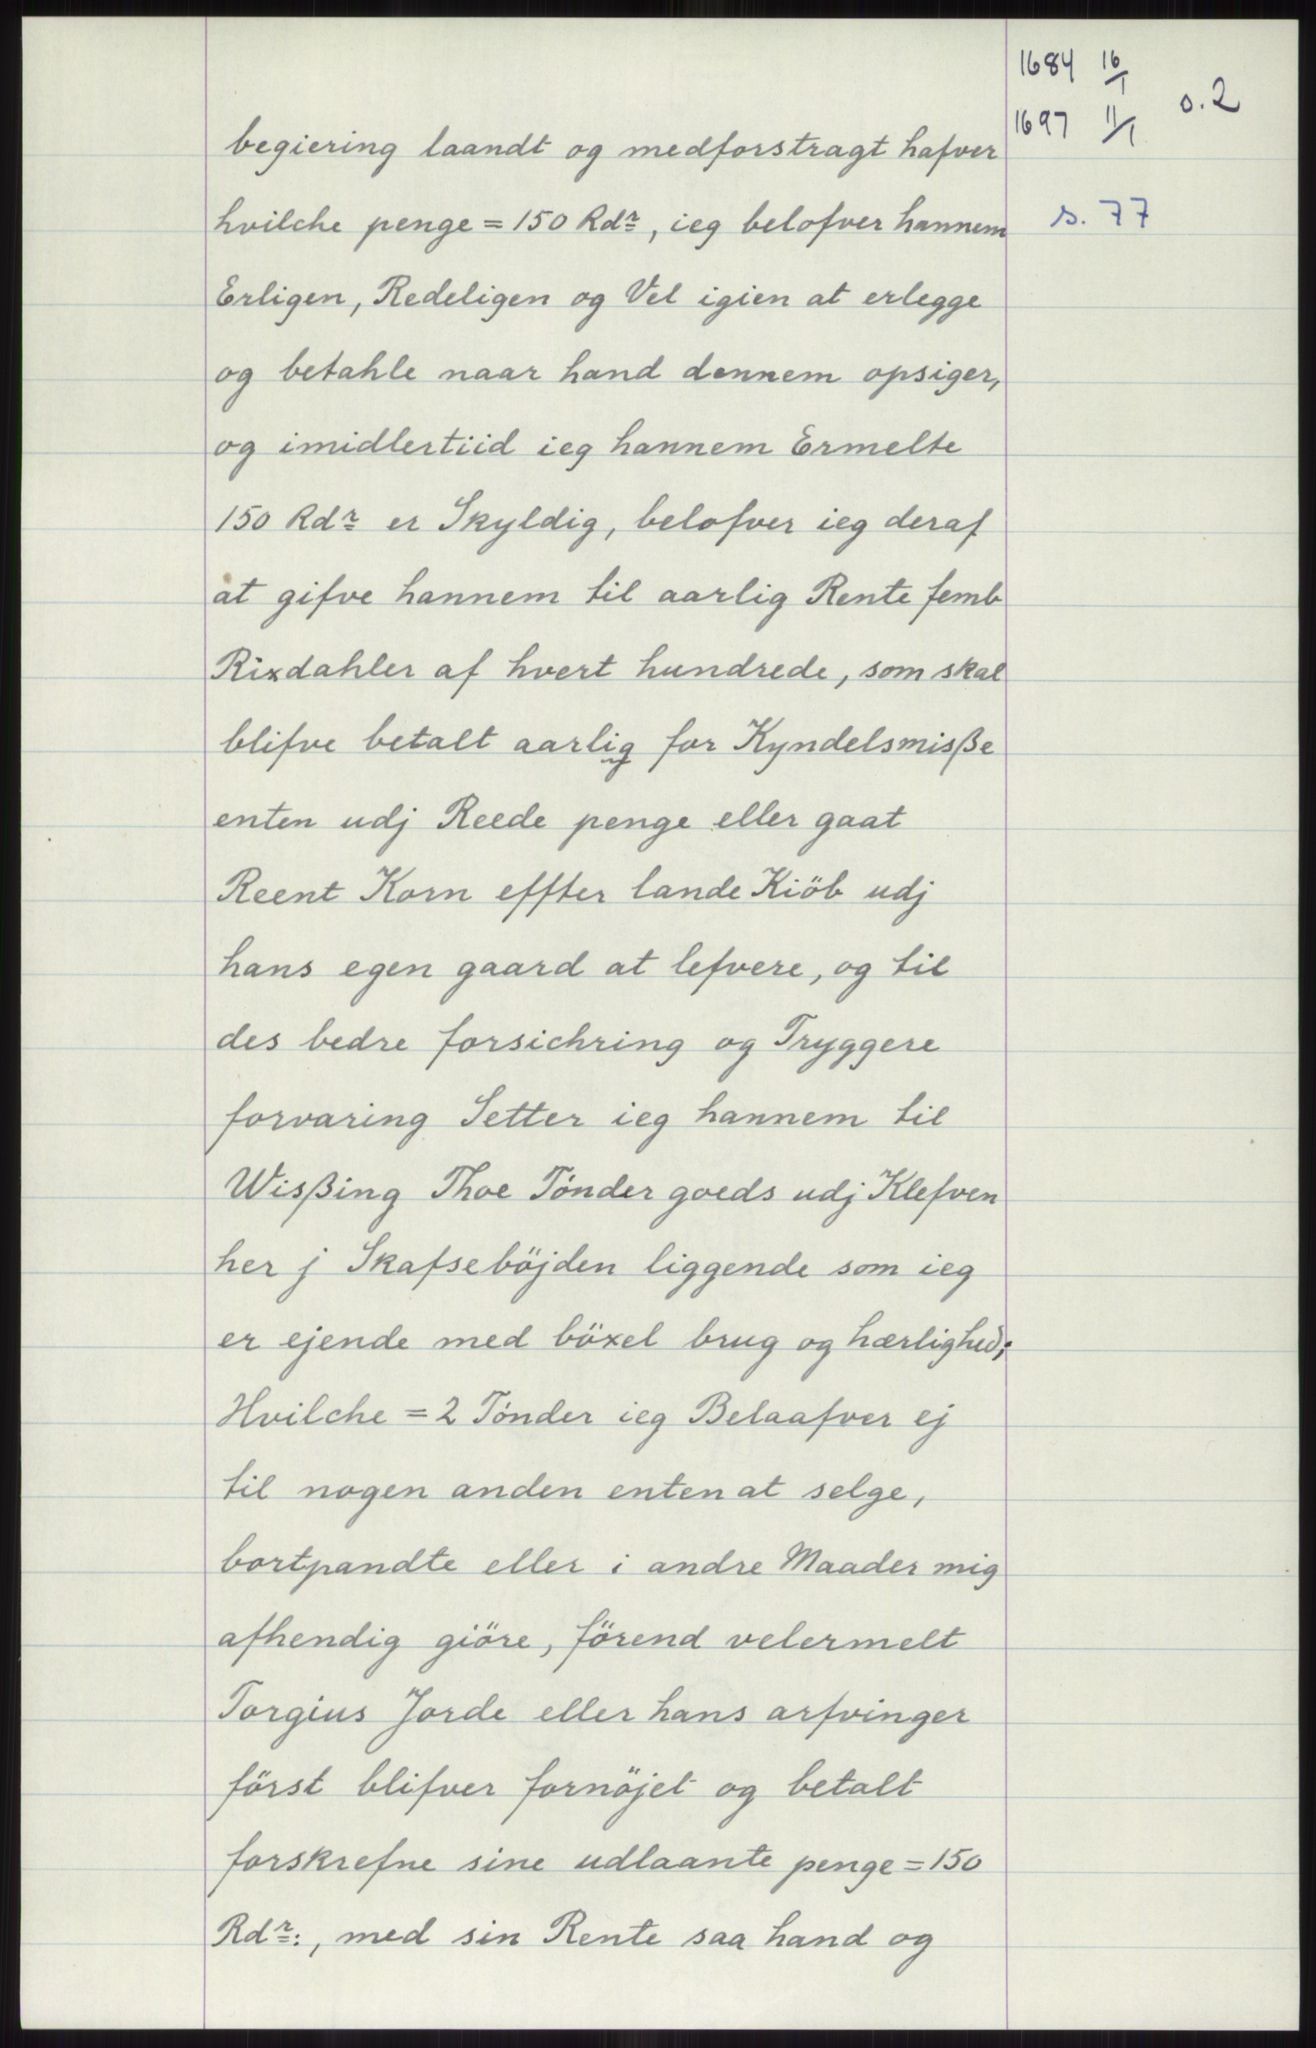 1684 16/1
1697 11/1 s. 2
s. 77
begiering laandt og medforstragt hafver
hvilche penge = 150 Rdr, ieg belofver hannem
Erligen, Redeligen og Vel igien at erlegge
og betahle naar hand dennem opsiger,
og imidlertiid ieg hannem Ermelte
150 Rdr er Skyldig, belofver ieg deraf
at gifve hannem til aarlig Rente femb
Rixdahler af hvert hundrede, som skal
blifve betalt aarlig for Kyndelsmisße
enten udj Reede penge eller gaat
Reent Korn effter lande Kiöb udj
hans egen gaard at lefvere, og til
des bedre forsichring og Tryggere
forvaring Setter ieg hannem til
Wisßing Thoe Tónder goeds udj Klefven
her j Skafseböjden liggende som ieg
er ejende med böxel brug og hærlighed;
Hvilche = 2 Tónder ieg Belaafver ej
til nogen anden enten at selge,
bortpandte eller i andre Maader mig
afhendig giöre, förend velermelt
Torgius Jorde eller hans arfvinger
först blifver fornöjet og betalt
forskrefne sine udlaante penge = 150
Rdr:, med sin Rente saa hand og